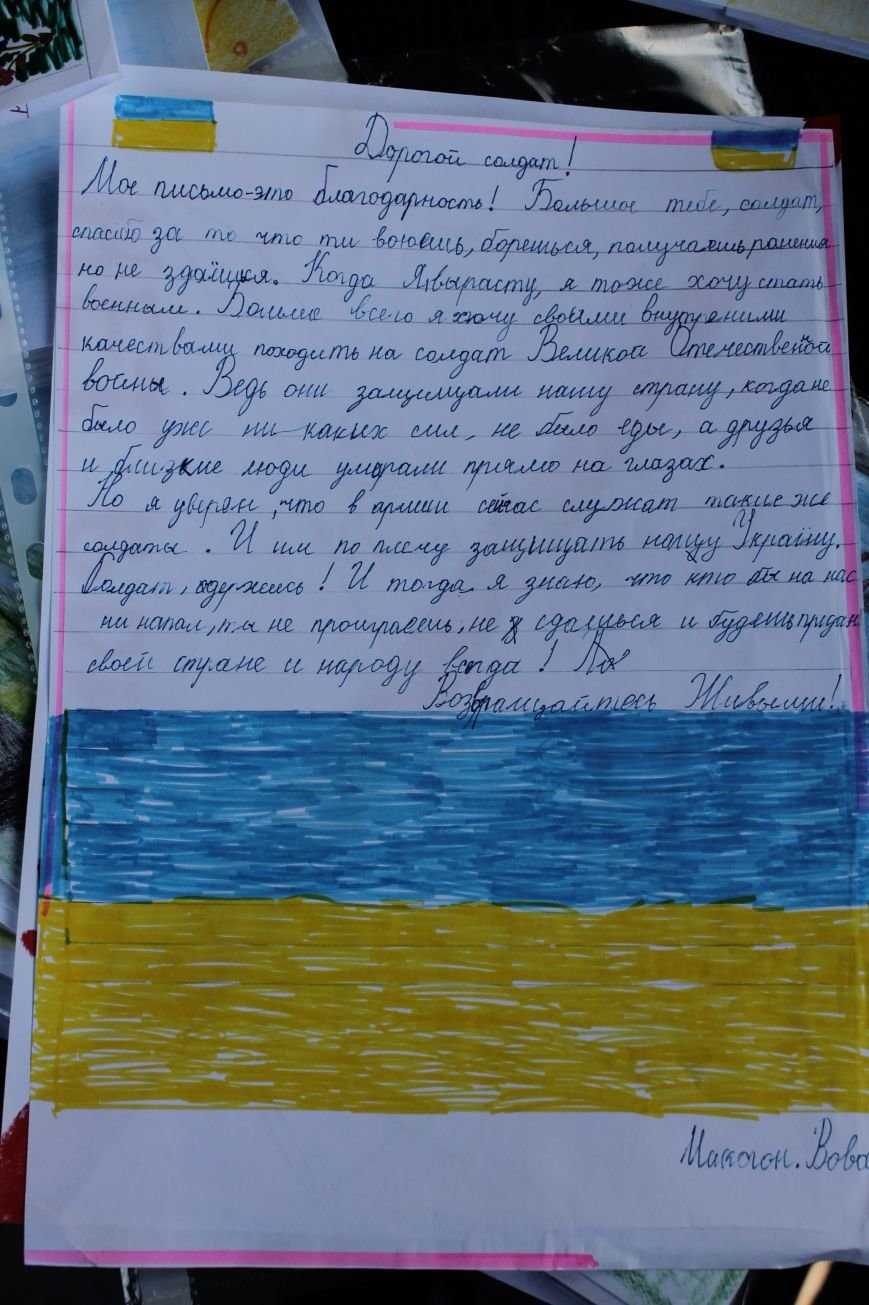 Дорогой солдат!
Мое письмо-это благодарность! Большое тебе, солдат,
спасибо за то что ти воюешь, борешься, получаешь ранения
но не здаїшся. Когда я вырасту, я тоже хочу стать
военным. Больше всего я хочу своими внутреними
качествами походить на солдат Великой Отечественной
войны. Ведь они защищали нашу страну, когда не
было уже ни каких сил, не было еды, а друзья
и близкие люди умирали прямо на глазах.
Но я уверен, что в армии сейчас служат такие же
солдаты. И им по плечу защищать нашу Україну.
Солдат, держись! И тогда я знаю, что кто бы на нас
ни напал, ты не проиграешь, не сдашься и будешь предан
своей стране и народу всегда!
Возвращайтесь Живыми!
Макогон. Вова